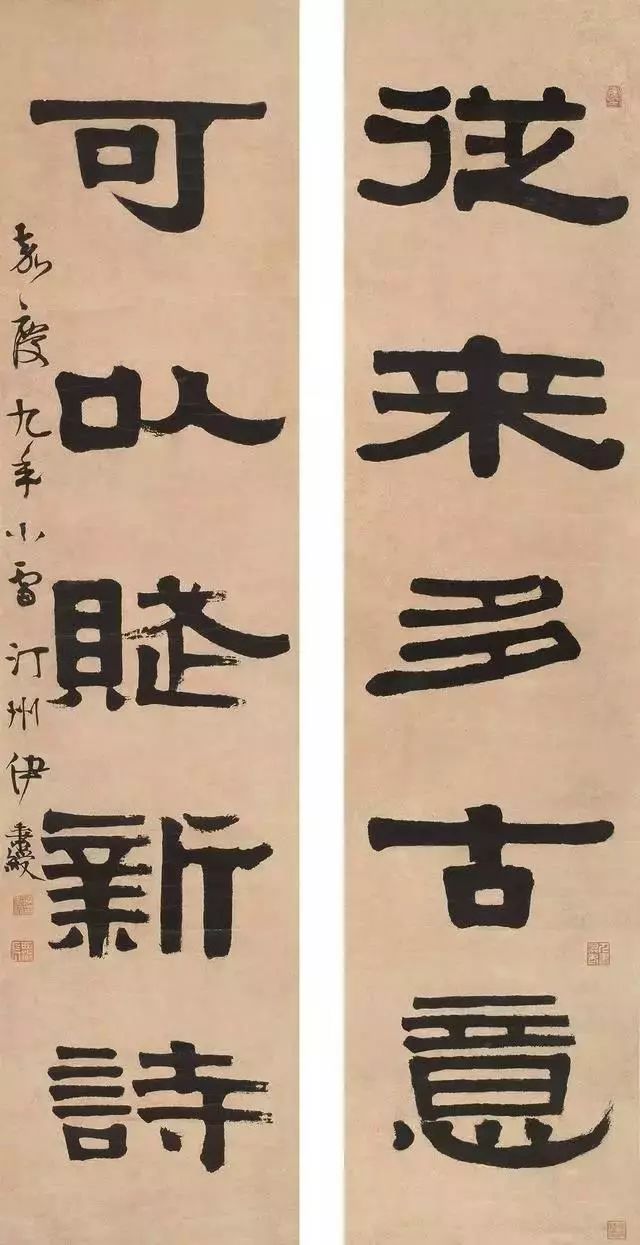 從來多古意
可以賦新詩
嘉慶九年小雪汀州伊秉綬